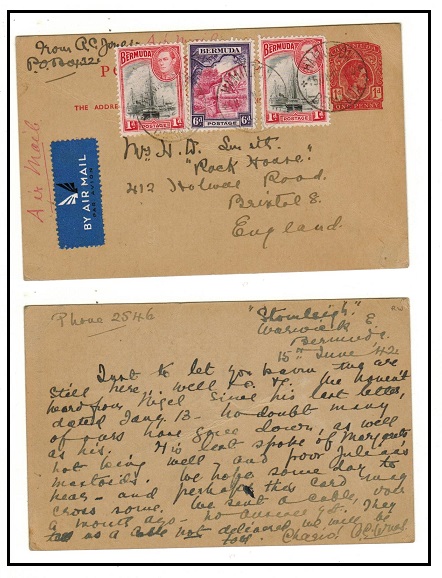 from R.C. Jones
P.O. Box 221
Air Mail
THE ADDRE
BERMUDA
POSTAGE
1d
1d
BERMUDA
6d
POSTAGE
6d
BERMUDA
1d
POSTAGE
1d
1d
1d
ONE PENNY
Air Mail
BY AIR MAIL
H. W. Smith.
"Rock House"
412 Holwal Road.
Bristol E.
England.
Phone 2546
"Stonleigh"
Warwick E.
Bermuda.
15th June 42
Just to let you know are
still here, well We haven't
heard from Nigel since his last letter,
dated Jany. 13 - no doubt many
of ours have gone down, as well
as his. His last spoke of Margaret
not being well - and poor
mastoids. We hope some day to
hear - and perhaps this card may
cross some. We sent a cable,
a month ago - no answer They
us a cable not delivered we will be
told. Cheerio!